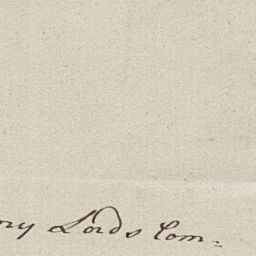 my Lords Com: